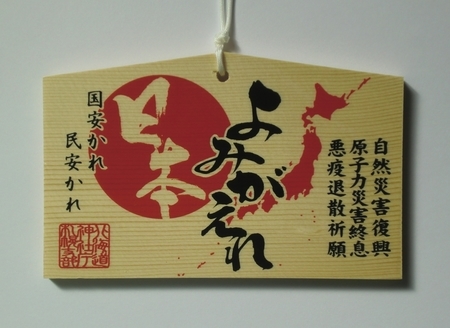 自然災害復興
原子力災害終息
悪疫退散祈願
よみがえれ
日本
国安かれ
民安かれ
北海道
神社庁